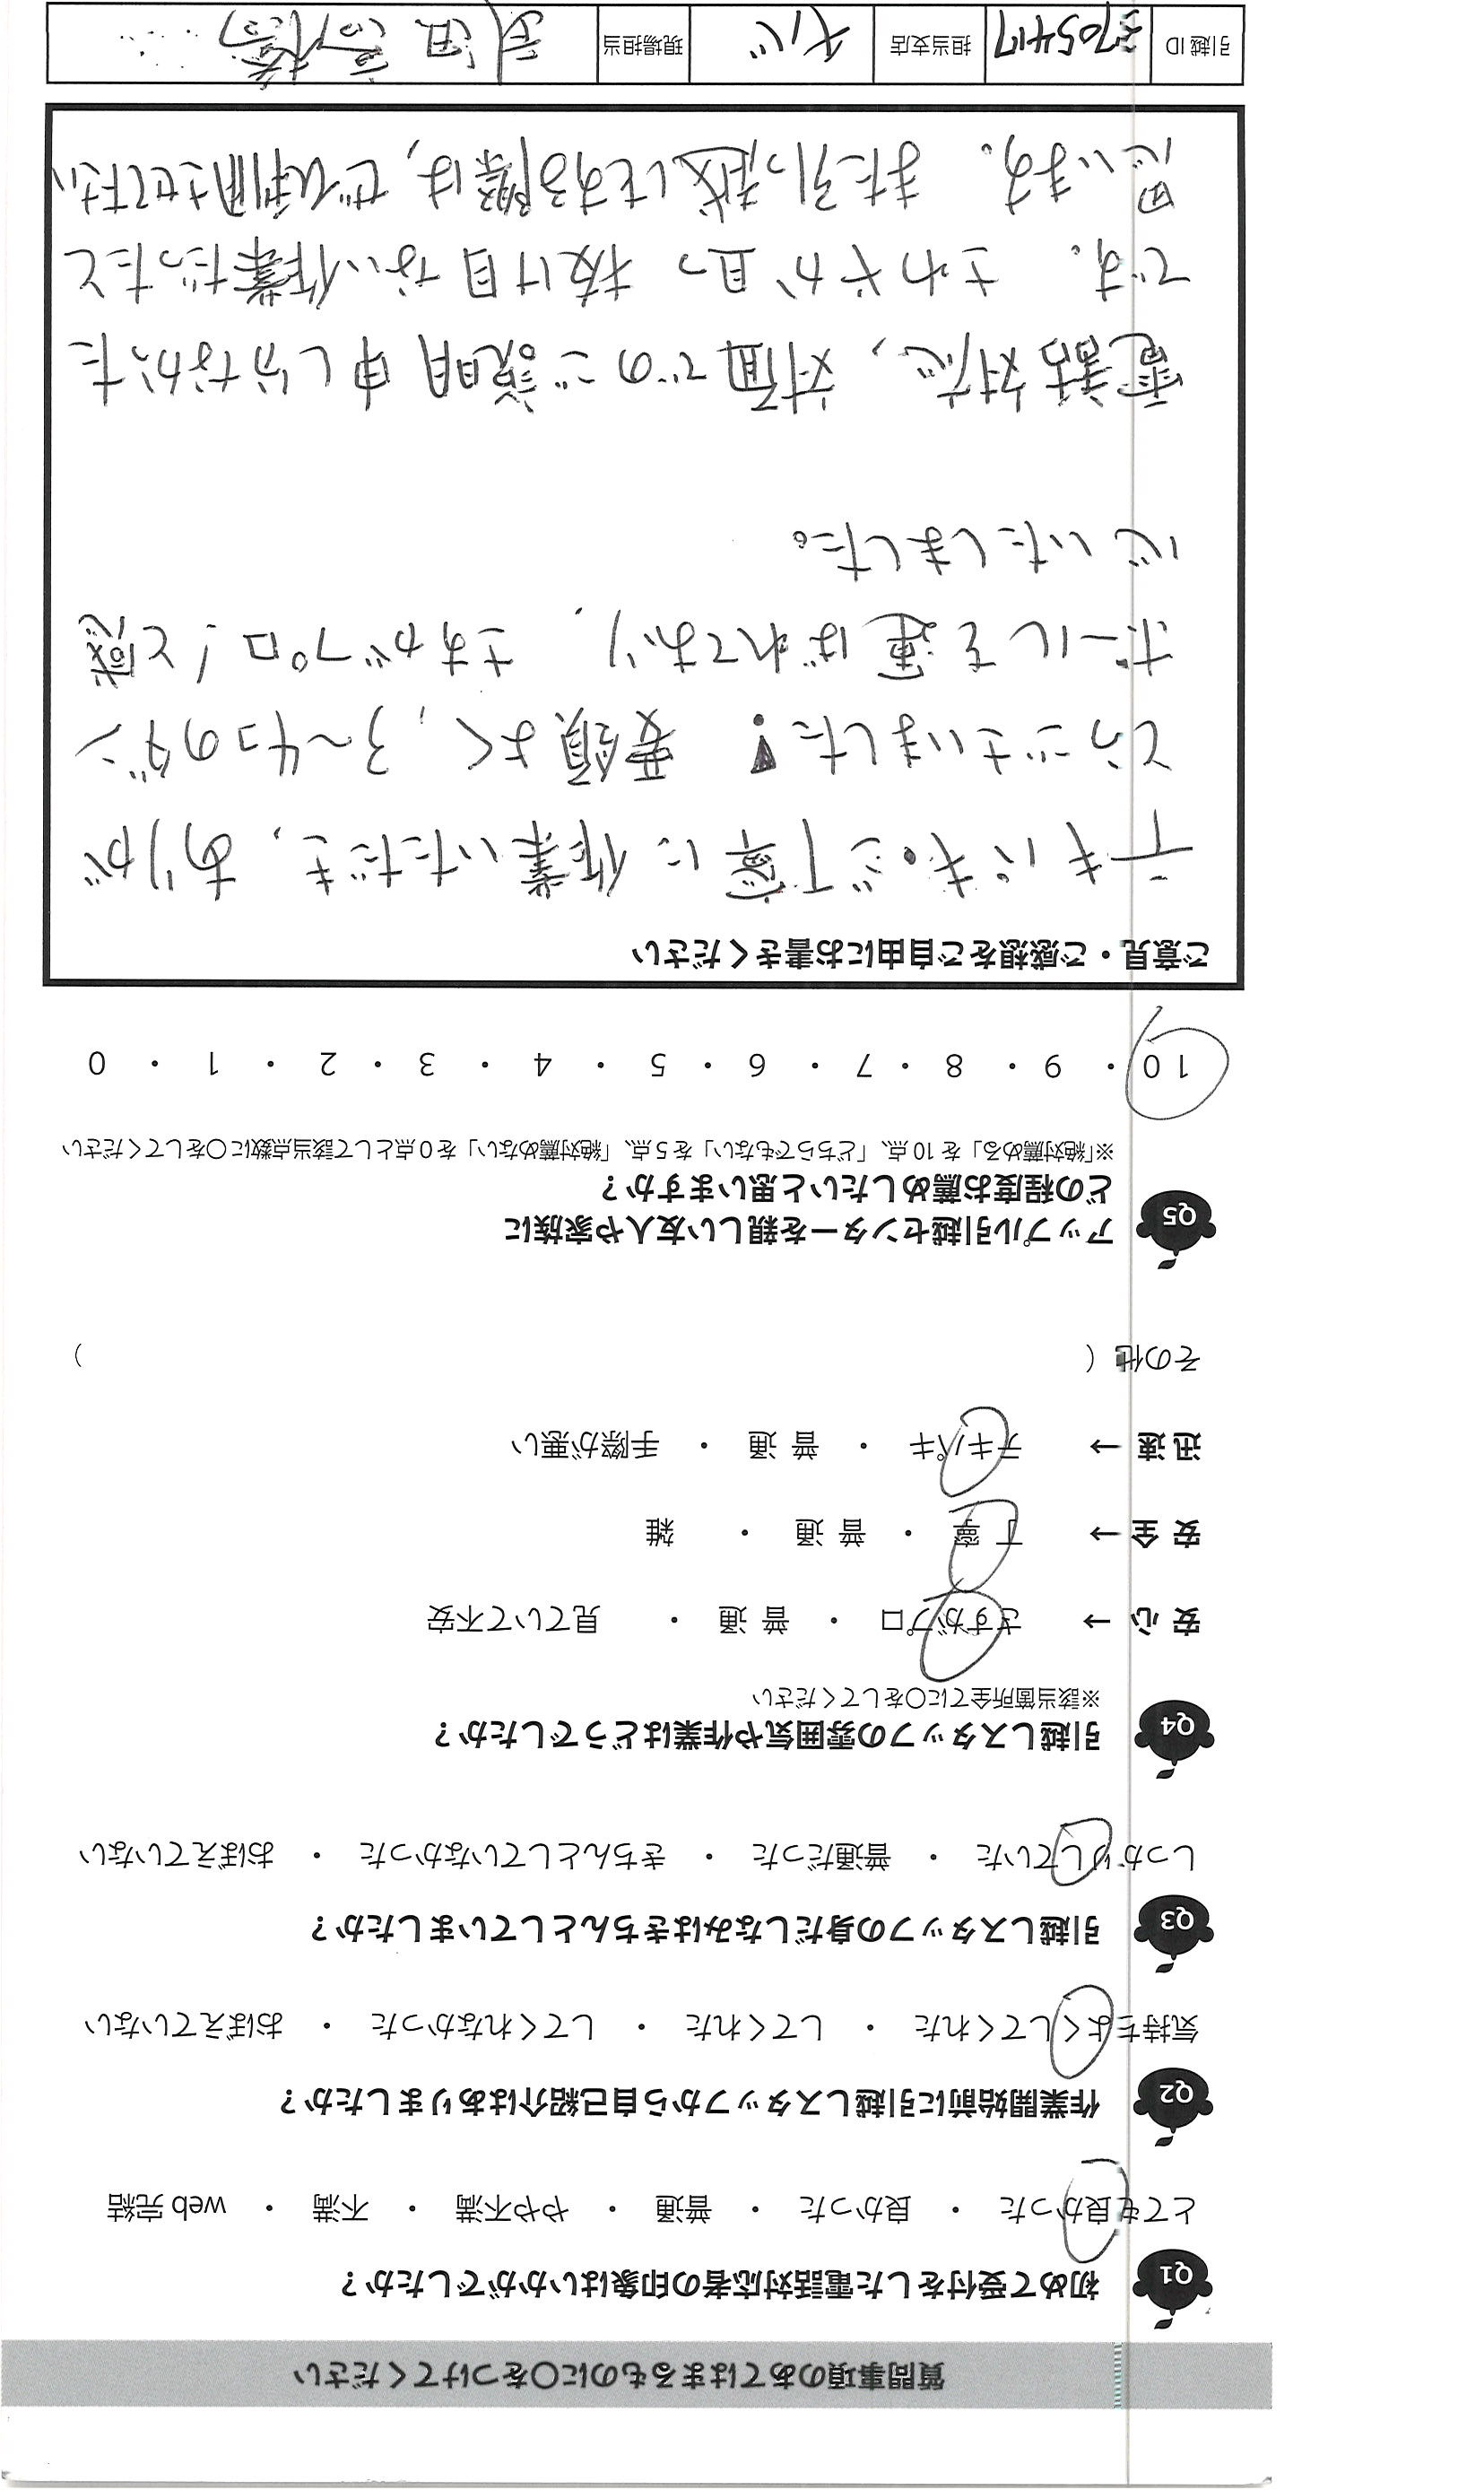 質問事項のあてはまるものに○をつけてください
Q1 初めて受付をした電話対応者の印象はいかがでしたか？
とても良かった ・ 良かった ・ 普通 ・ やや不満 ・ 不満 ・ web 完結
Q2 作業開始前に引越しスタッフから自己紹介はありましたか？
気持ちよくしてくれた ・ してくれた ・ してくれなかった ・ おぼえていない
Q3 引越しスタッフの身だしなみはきちんとしていましたか？
しっかりしていた ・ 普通だった ・ きちんとしていなかった ・ おぼえていない
Q4 引越しスタッフの雰囲気や作業はどうでしたか？
※該当箇所全てに○をしてください
安 心 → さすがプロ ・ 普 通 ・ 見ていて不安
安 全 → 丁 寧 ・ 普 通 ・ 雑
迅 速 → テキパキ ・ 普 通 ・ 手際が悪い
その他（ ）
Q5 アップル引越センターを親しい友人や家族に
どの程度お薦めしたいと思いますか？
※「絶対薦める」を 10 点、「どちらでもない」を 5 点、「絶対薦めない」を 0 点として該当点数に○をしてください
10 ・ 9 ・ 8 ・ 7 ・ 6 ・ 5 ・ 4 ・ 3 ・ 2 ・ 1 ・ 0
ご意見・ご感想をご自由にお書きください
テキパキ。ご丁寧に作業いただき、ありが
とうございました! 要領よく、3〜4コのダン
ボールを運ばれており、さすがプロ!と感
心いたしました。
電話対応、対面でのご説明申し分なかった
です。さわやか且つ抜け目ない作業だったと
思います。また引っ越しする際は、ぜひ利用させて下さい
引越 ID 3705417 担当支店 チバ 現場担当 武田 高橋